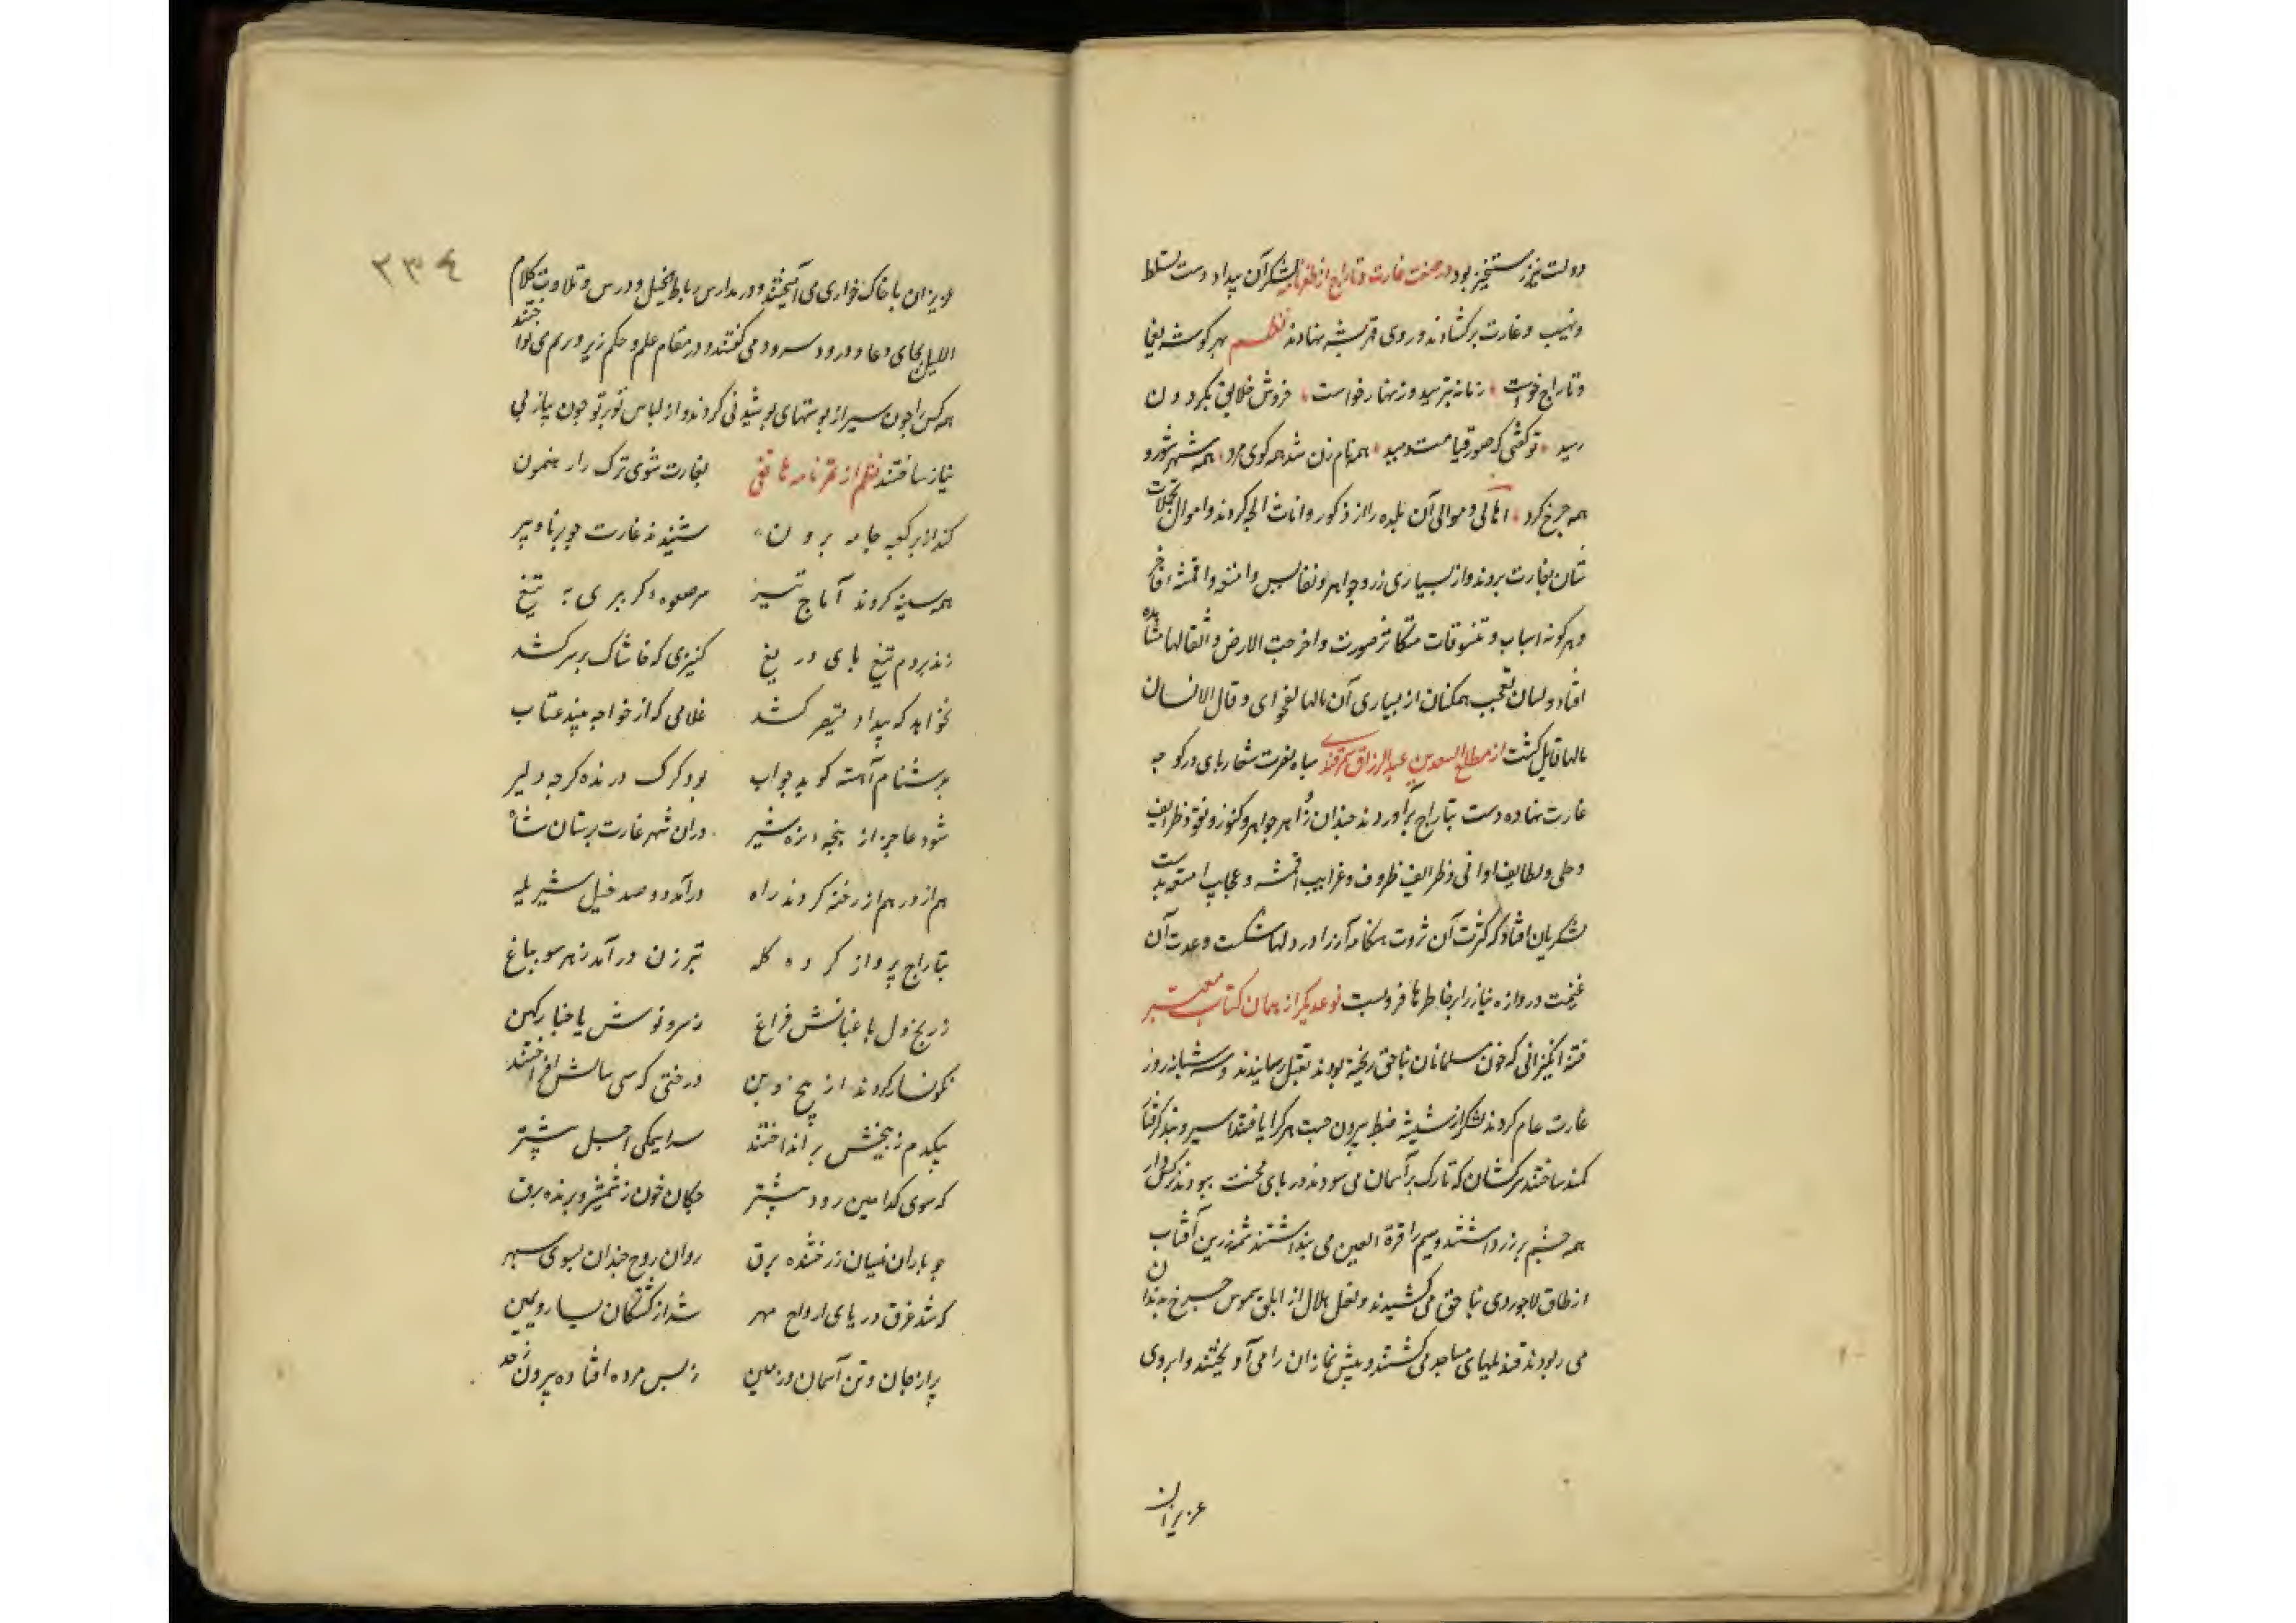 دولت نیز رستخیز بود در صفت غارت و تاراج از ظفرنامه لشکر آن بیداد دست تسلط
و نهیب و غارت برکشادند و روی قهر بشهر نهادند نظم بهر گوشه یغما
و تاراج خواست زمانه بترسید و زنهار خواست خروش خلایق بگردون
رسید تو گفتی که صور قیامت دمید همه نام زن شد همه کوی مرد همه شهر شورو
همه چرخ کرد اهالی و موالی آن بلده را از ذکور و اناث الجه کردند و اموال تجملات
شان بغارت بردند و از بسیاری زر و جواهر و نفایس و امتعه و اقمشه فاخر
و هر گونه اسباب و تنسوقات متکاثر صورت و اخرجت الارض اثقالها مشاهده
افتاد و لسان تعجب همکنان از بسیاری آن مالها بفحوای و قال الانسان
مالها قایل گشت از مطلع السعدین عبدالرزاق سمرقندی سپاه نصرت شعار پای در کوچه
غارت نهاده دست بتاراج برآوردند چندان زواهر جواهر و کنوز و نقود ظرایف
و حلی و لطایف اوانی و ظرایف ظروف و غرایب اقمشه و عجایب امتعه بدست
لشکریان افتاد که کثرت آن ثروت هنگامه آرزا در دلها شکست و عدت آن
غنیمت دروازه نیاز را بر خاطرها فرو بست نوعدیگر از همان کتاب معتبر
فتنه انگیزانی که خون مسلمانان بناحق ریخته بودند بقتل رسانیدند و سه شبانه روز
غارت عام کردند لشکر از شیشه ضبط بیرون جست هر کرا یافتند اسیر و بند گرفتار
کمند ساختند سرکشان که تارک بر آسمان می سودند در پای محنت بیودند نرکس وار
همه چشم بر زر داشتند و سیم را قرة العین می پنداشتند شمسه زرین آفتاب
از طاق لاجوردی بناحق می کشیدند و نعل هلال از ابلق شموس چرخ بدندان
می ربودند قندیلهای مساجد می کشتند و پیش نمازان را می آویختند و ابروی
عزیزان
۲۳۴
عزیزان با خاک خواری می آمیختند و در مدارس رباط الخیل و درس و تلاوت کلام
اللیل بجای دعا و درود سرود می گفتند و در مقام علم و حکم زیر و بم می نواختند
همه کس را چون سیر از پوستهای پوشیدنی کردند و از لباس تو برتو چون پیاز بی
نیاز ساختند نظم از تمرنامه هاتفی بغارت شوی ترک را رهنمون
کند از بر کعبه جامه برون شنیدند غارت چو برنا و پیر
همه سینه کردند آماج تیر مر صعوه در بری به تیغ
زند بردم تیغ پای دریغ کنیزی که خاشاک بر سر کشد
نخواهد که بیداد قیصر کشد غلامی که از خواجه بیند عتاب
بدشنام آهسته گوید جواب بود گرگ درنده گرچه دلیر
شود عاجز از پنجه نره شیر دران شهر غارت پرستان شاه
هم از در هم از رخنه کردند راه درآمد دو صد خیل شیر یله
بتاراج پرواز کرده گله تبرزن درآمد ز هر سو بباغ
ز ریخ دل باغبانش فراغ ز سرو نوش یا خبار کهن
نگونسار کردند از بیخ و بن درختی که سی سالش افراختند
بیکدم ز بیخش برانداختند سراییمکی اجل بیشتر
که سوی کدامین رود پیشتر چکان خون ز شمشیر و برنده برق
چو باران نیسان ز رخشنده برق روان روح چندان بسوی سپهر
که شد غرق دریای ارواح مهر شد از کشتگان یسار و یمین
پر از جان و تن آسمان و زمین ز بس مرده افتاده بیرون ز حد